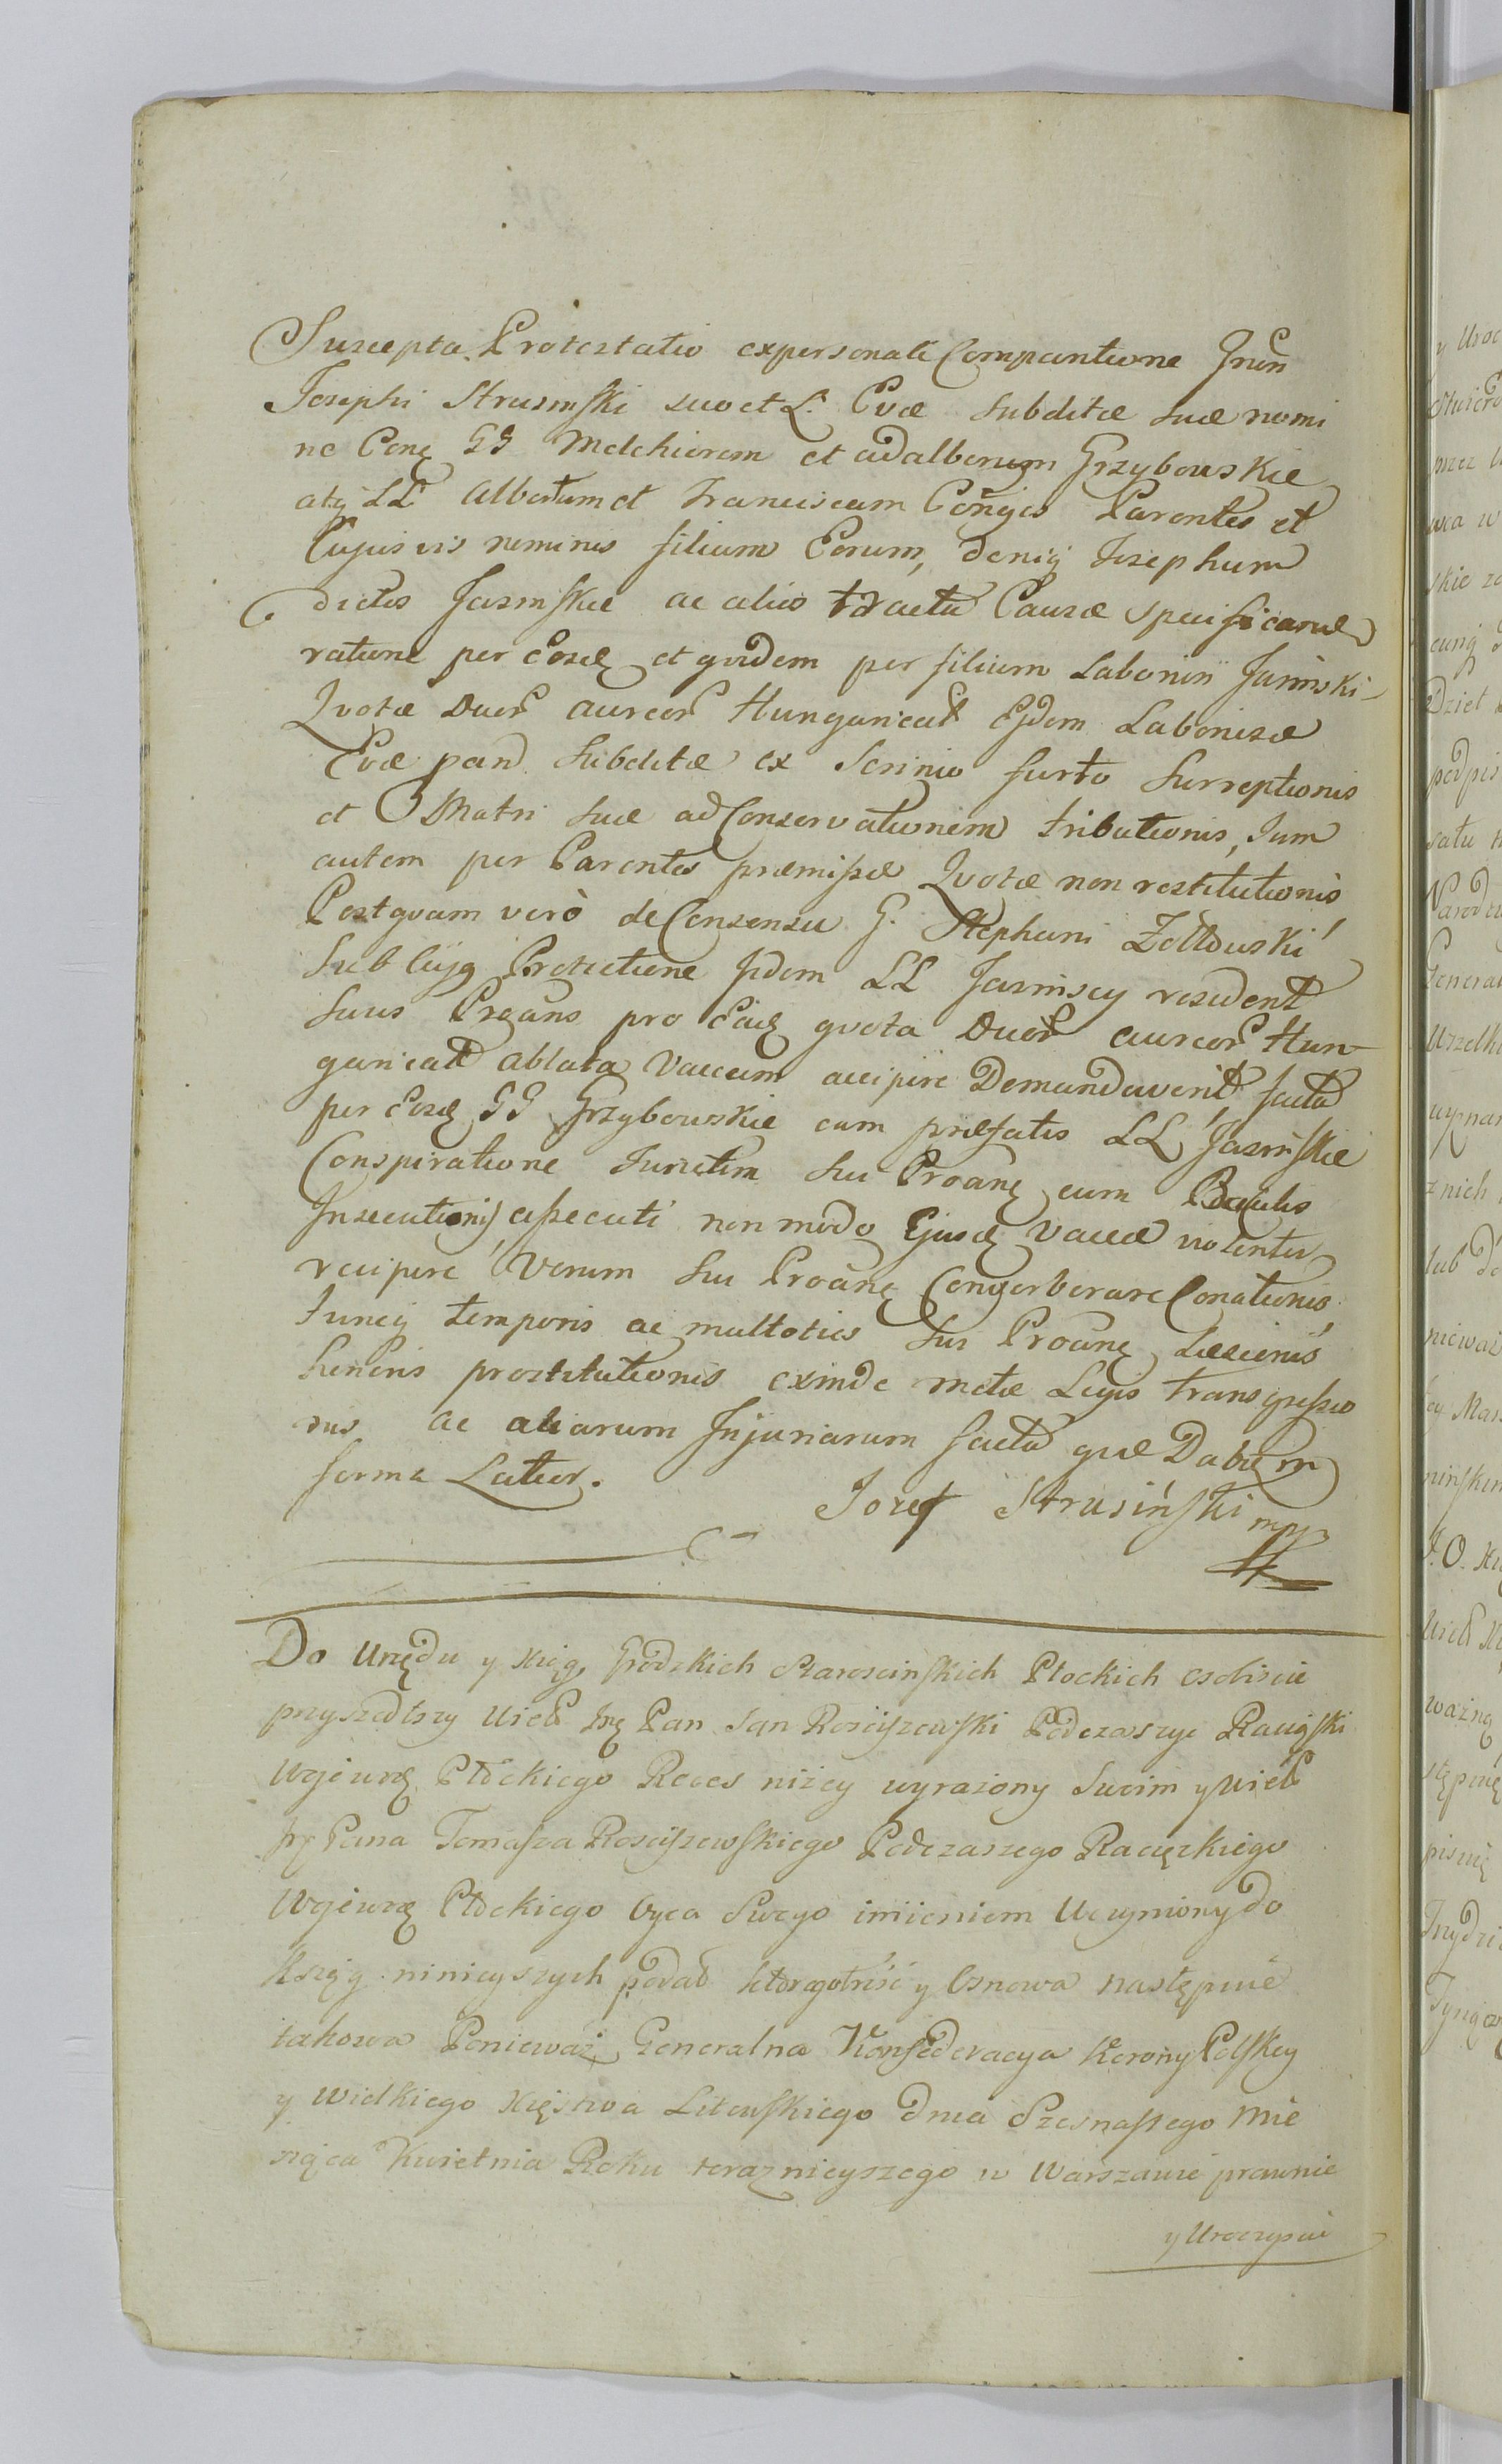 Suscepta Protestatio ex personali Comparitione Gnên
Josephi Strusinski suo et L. Evæ subditæ suæ nomi
ne Conq GG Melchiorem et adalbertum Grzybowskie
atq LL Albertum et Franciscam Cõnges Parentes et
Cujusvis nominis filium Eorum, deniq Josephum
dictos Jasinskie ac alio tractu Causæ specificand
ratione per Eosd et quidem per filium Laboriosi Jasinski
Quotæ Duor aureor Hungaricat Ejdem Laboriosæ
Evæ pand subditæ ex scrinio furto Surreptionis
et Matri suæ ad Conservationem tributionis, Jam
autem per Parentes præmissæ Quotæ non restitutionis
Postquam verò de Consensu G. Stephani Zołtowski
Sub Cujq Protectione jidem LL Jasinscy resident
suus Preans pro Ead quota Duor aureor Hun-
garicat ablata Vaccam accipere Demandaverit facta
per Eosd GG Grzybowskie cum præfatis LL Jasinskie
Conspiratione Junctim sui Proanq cum Baculis
Insecutionis assecuti non modo Ejusd Vaccæ violenter
recipere Verum sui Proanq Converberare Conationis
Tuncq temporis ac multoties sui Proanq Læsionis
honoris prostitutionis exinde metæ Legis transgressio
nis ac aliarum Injuriarum facta quæ Dabitm
forma Latior.
Jozef Strusiński mp
Do Urzędu y Xiąg Grodzkich Staroscinskich Płockich osobiscie
przyszedłszy Wiel Jmę Pan Jan Rosciszewski Podczaszyc Raciąski
Wojewz Płockiego Reces niżey wyrażony Swoim y Wiel
Jmę Pana Tomasza Rosciszewskiego Podczaszego Raciązkiego
Wojewz Płockiego Oyca Swego imieniem Uczyniony do
Xsiąg ninieyszych podał ktorego treść y Osnowa następuie
takowa Ponieważ Generalna Konfederacya Korony Polskey
y Wielkiego Xięstwa Litewskiego dnia Szesnastego Mie
siąca Kwietnia Roku teraznieyszego w Warszawie prawnie
y Uroczyscie